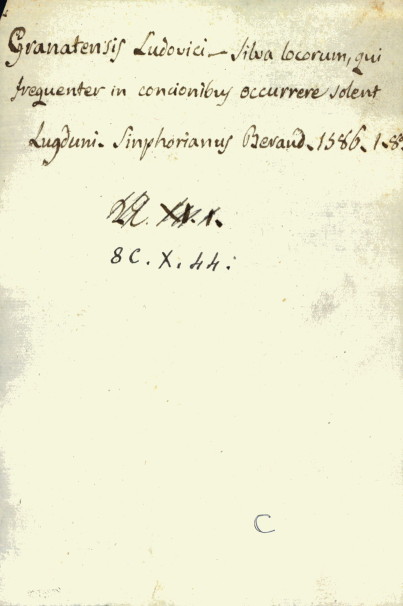 Granatensis Ludovici - Silva locorum, qui
frequenter in concionibus occurrere solent
Lugduni. Sinphorianus Beraud. 1586. 1. 8.
8 C. X. 44.
C